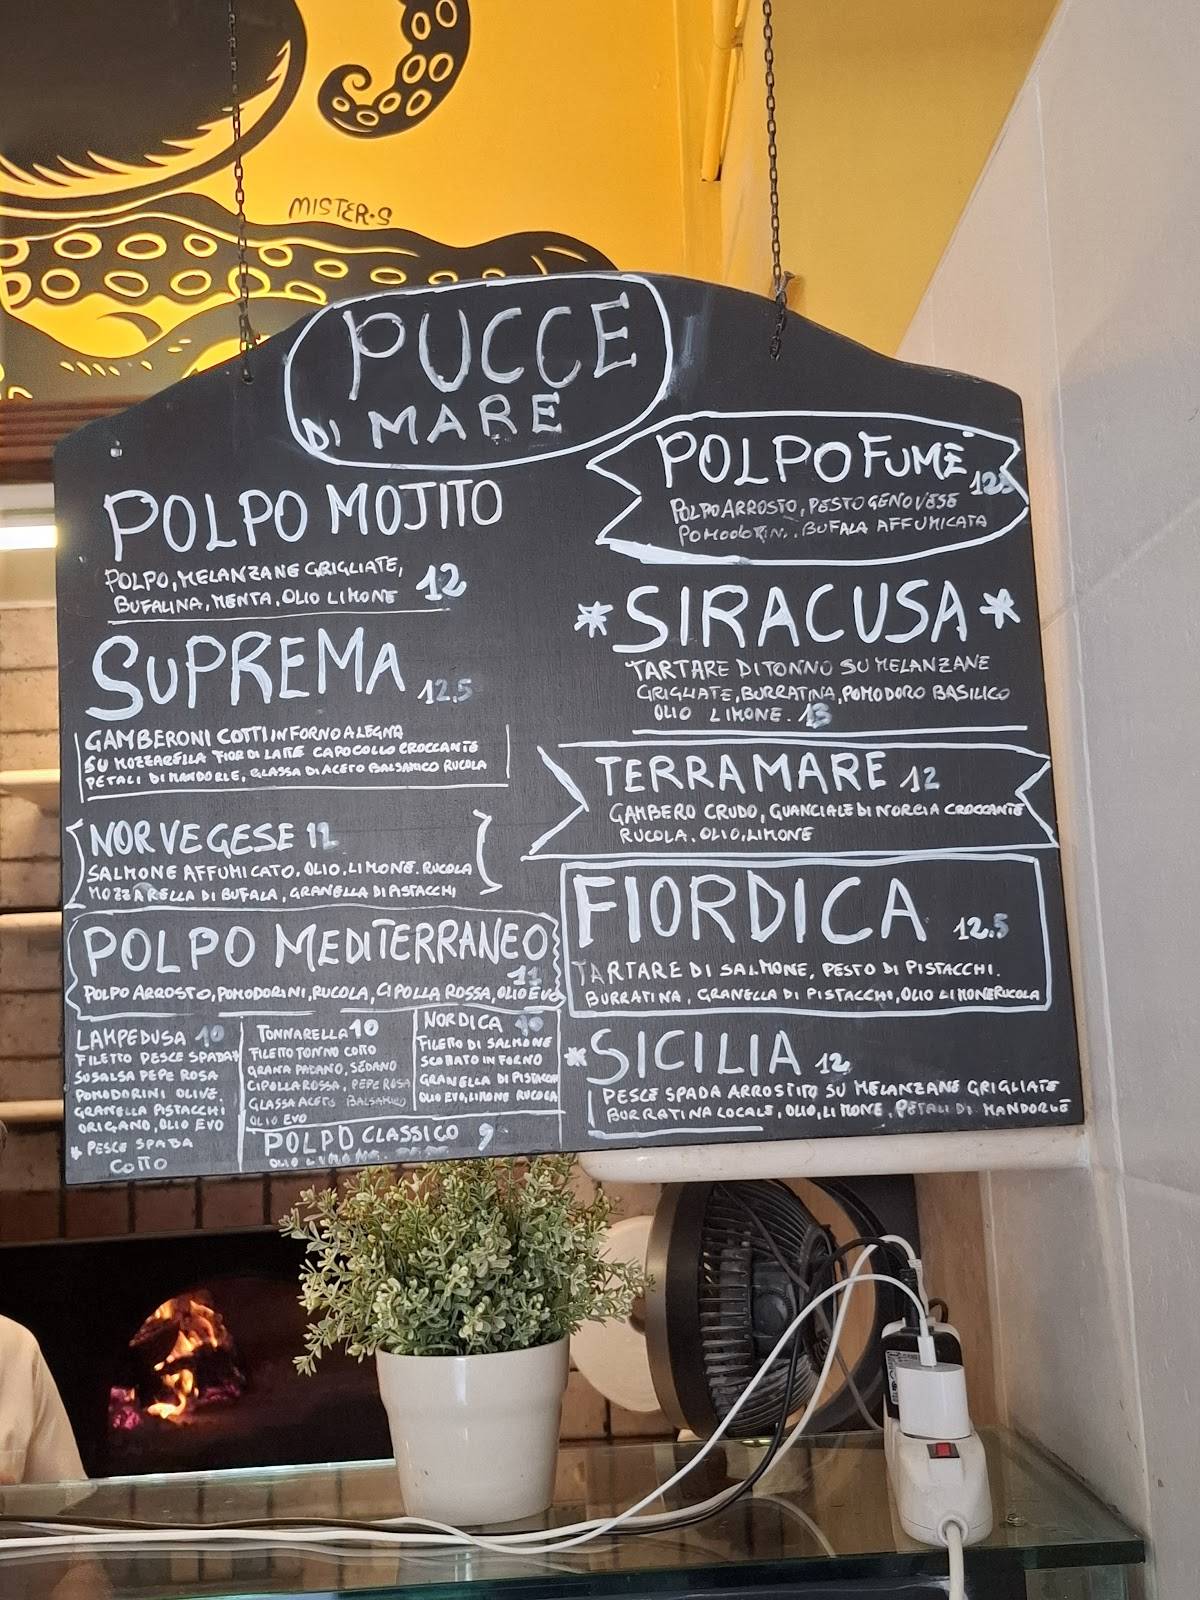 MISTER.S
PUCCE
DI MARE
POLPO MOJITO
POLPO, MELANZANE GRIGLIATE,
BUFALINA, MENTA, OLIO LIMONE 12
SUPREMA 12.5
GAMBERONI COTTI IN FORNO A LEGNA
SU MOZZARELLA FIOR DI LATTE CAPOCOLLO CROCCANTE
PETALI DI MANDORLE, GLASSA DI ACETO BALSAMICO RUCOLA
NORVEGESE 12
SALMONE AFFUMICATO, OLIO, LIMONE. RUCOLA
MOZZARELLA DI BUFALA, GRANELLA DI PISTACCHI
POLPO MEDITERRANEO
11
POLPO ARROSTO, POMODORINI, RUCOLA, CIPOLLA ROSSA, OLIO EVO
LAMPEDUSA 10
FILETTO PESCE SPADA*
SU SALSA PEPE ROSA
POMODORINI OLIVE.
GRANELLA PISTACCHI
ORIGANO, OLIO EVO
* PESCE SPADA
COTTO
TONNARELLA 10
FILETTO TONNO COTTO
GRANA PADANO, SEDANO
CIPOLLA ROSSA, PEPE ROSA
GLASSA ACETO BALSAMICO
OLIO EVO
NORDICA 10
FILETTO DI SALMONE
SCOTTATO IN FORNO
GRANELLA DI PISTACCHI
OLIO EVO, LIMONE RUCOLA
POLPO CLASSICO 9
OLIO LIMONE.
POLPO FUMÈ 12.5
POLPO ARROSTO, PESTO GENOVESE
POMODORIN. BUFALA AFFUMICATA
*SIRACUSA*
TARTARE DI TONNO SU MELANZANE
GRIGLIATE, BURRATINA, POMODORO BASILICO
OLIO LIMONE. 13
TERRAMARE 12
GAMBERO CRUDO, GUANCIALE DI NORCIA CROCCANTE
RUCOLA. OLIO, LIMONE
FIORDICA 12.5
TARTARE DI SALMONE, PESTO DI PISTACCHI.
BURRATINA, GRANELLA DI PISTACCHI, OLIO LIMONE RUCOLA
*SICILIA 12
PESCE SPADA ARROSTITO SU MELANZANE GRIGLIATE
BURRATINA LOCALE, OLIO, LIMONE, PETALI DI MANDORLE